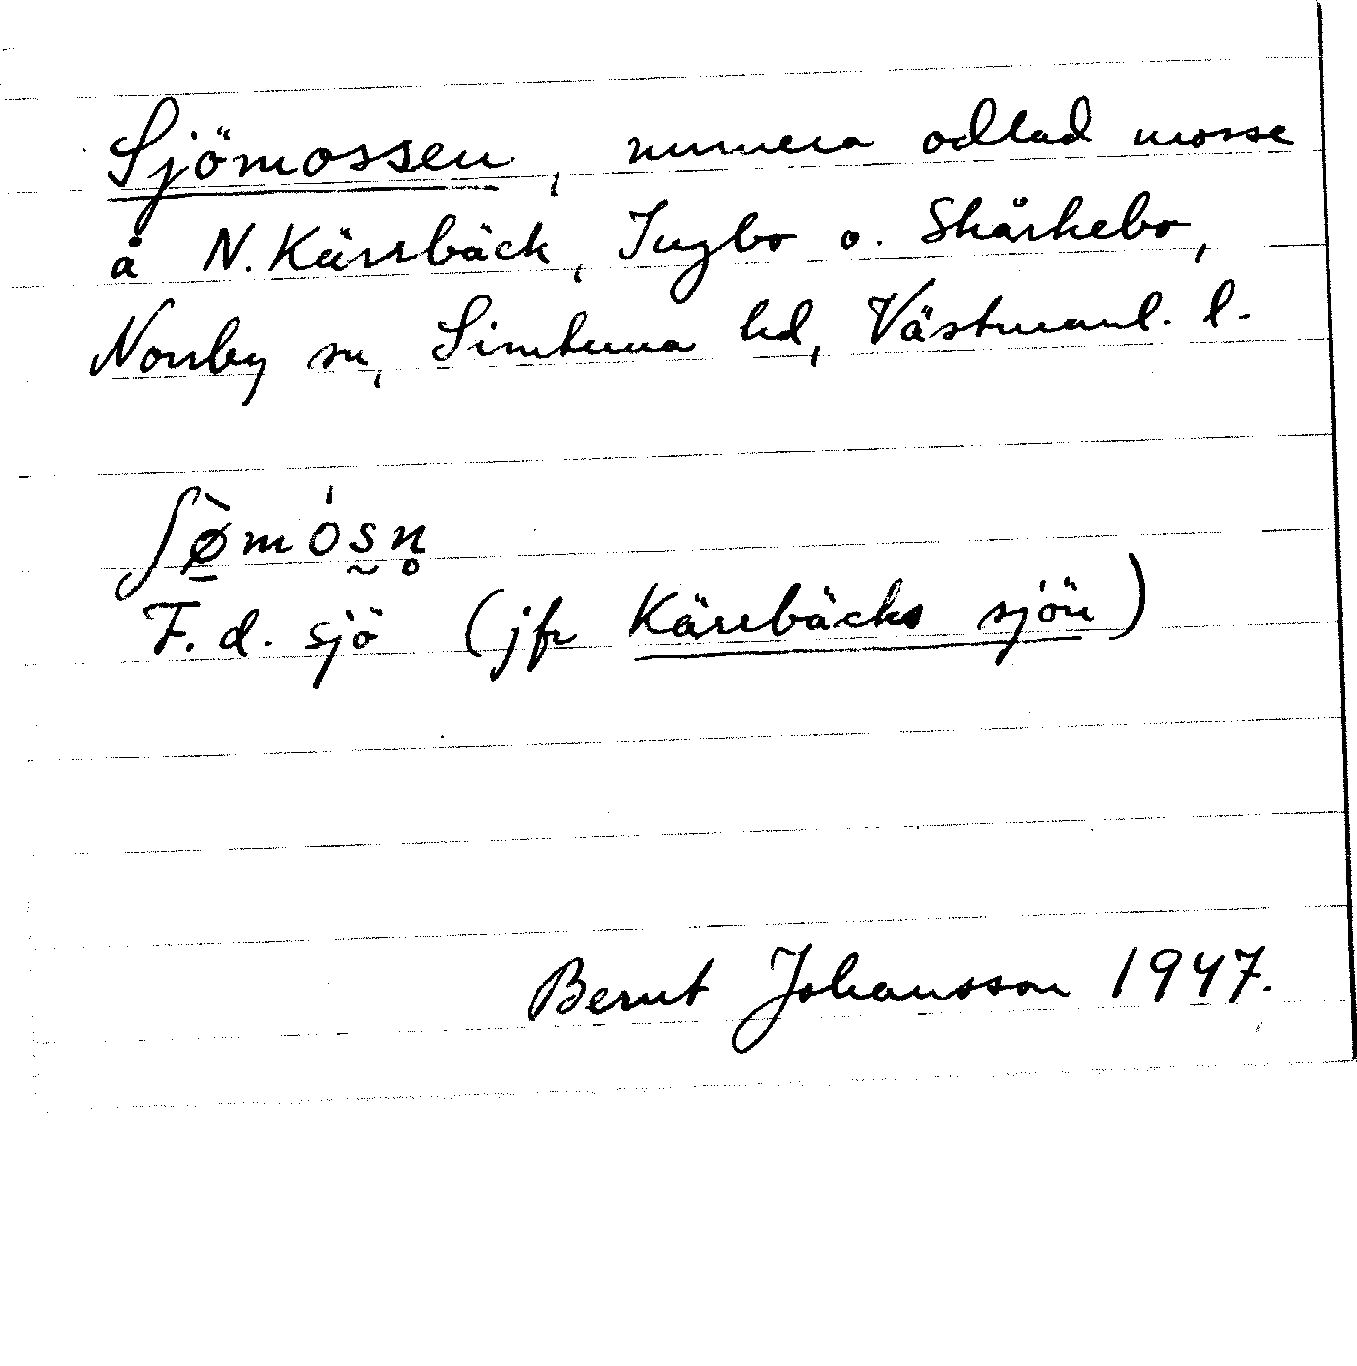 Sjömossen, numera odlad mosse
å N. Kärrbäck, Ingbo o. Skårkebo,
Norrby sn, Simtuna hd, Västmanl. l.
ʃø̠̀mósn̥
F. d. sjö (jfr Kärrbäcks sjön)
Bernt Johansson 1947.